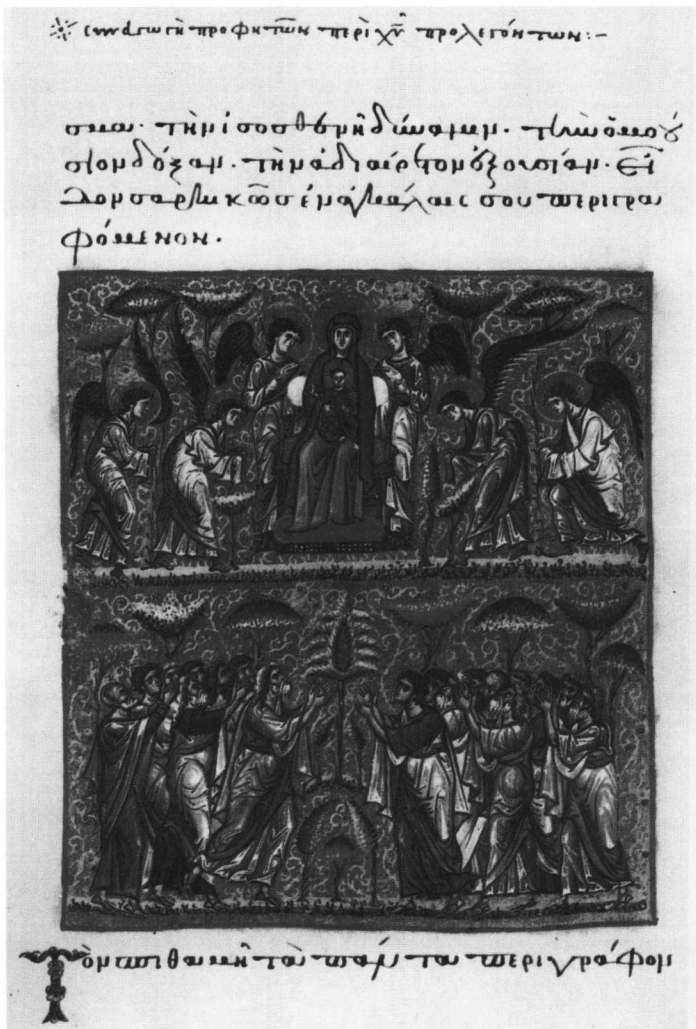 συναγωγὴ προφητῶν περὶ χῦ προλεγόντων:–
τὴν ἰσοσθενῆ δύναμιν. τὴν ὁμοού
σιον δόξαν. τὴν ἀδιαίρετον ἐξουσίαν. Εἶ
δον σαρκικῶς ἐν ἀγκάλαις σου περιγρα
φόμενον.
Τὸν τὰ πάντα περιγράφον